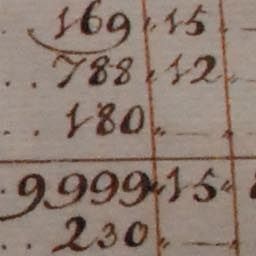 169 . 15 . —
.. 788 . 12 . —
.. 180 . — .
. 9999 . 15 .
.. 230 . — .